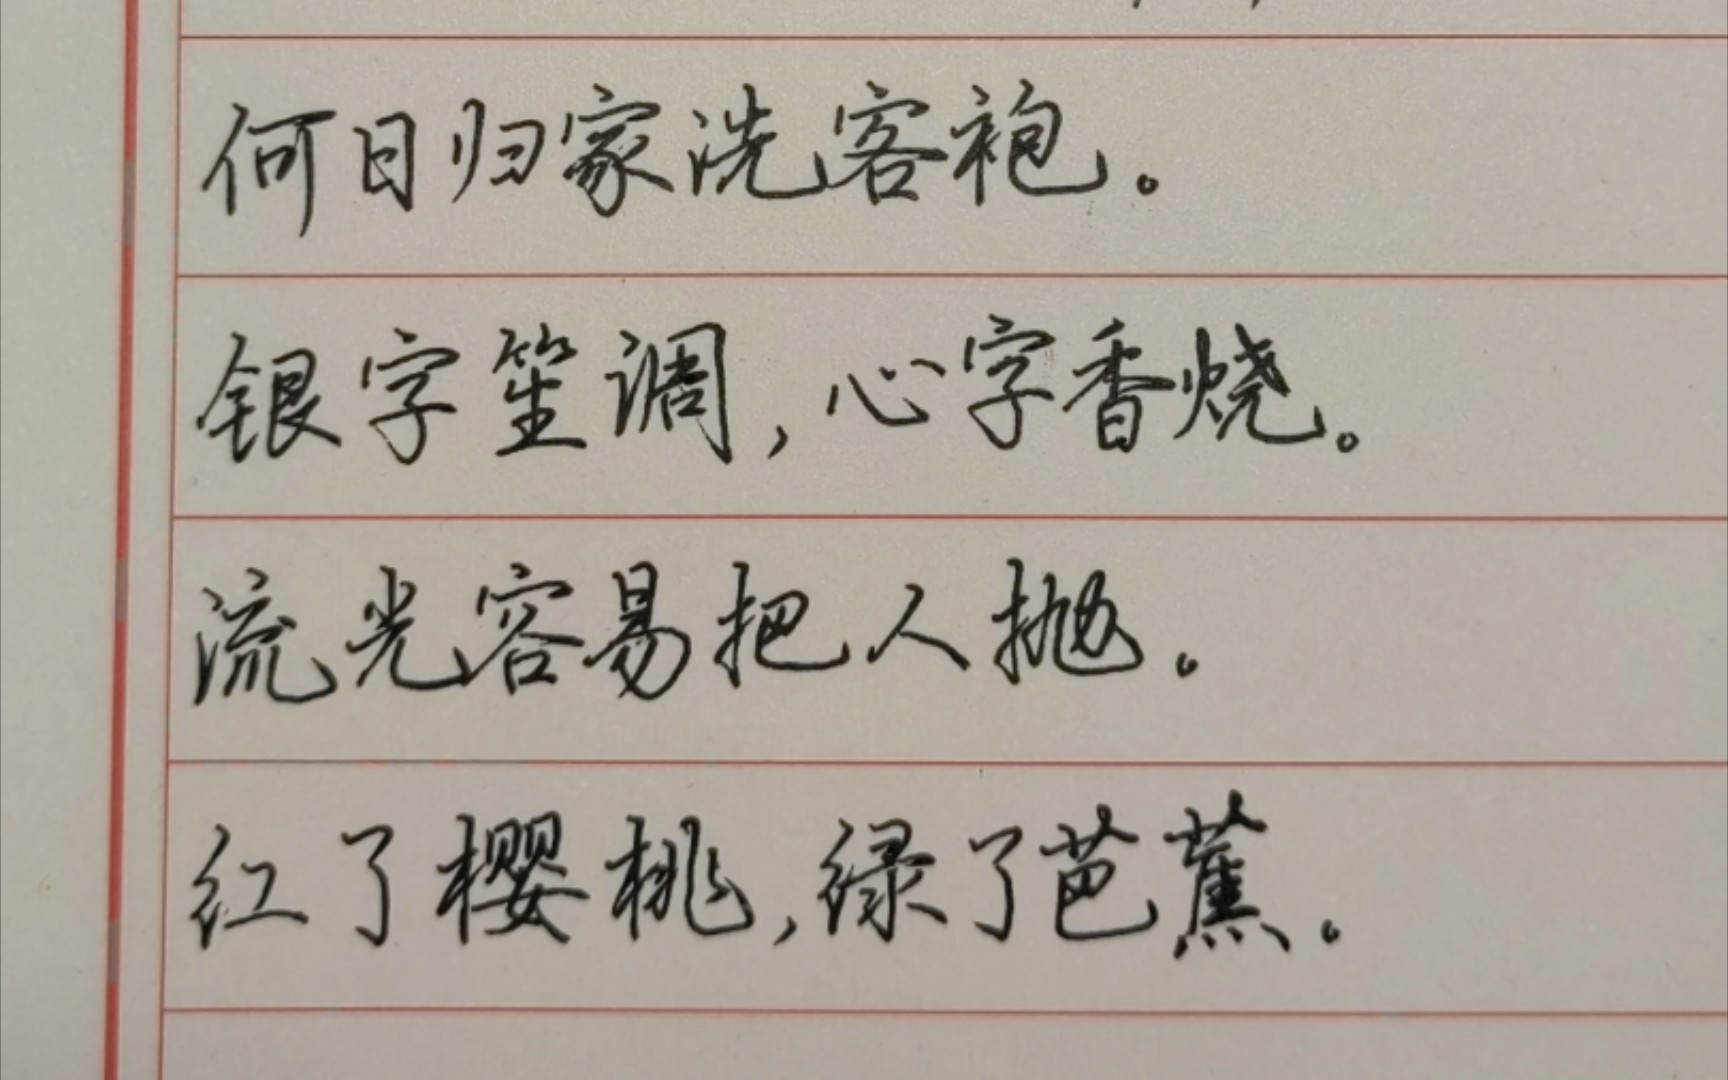 何日归家洗客袍。
银字笙调,心字香烧。
流光容易把人抛。
红了樱桃,绿了芭蕉。